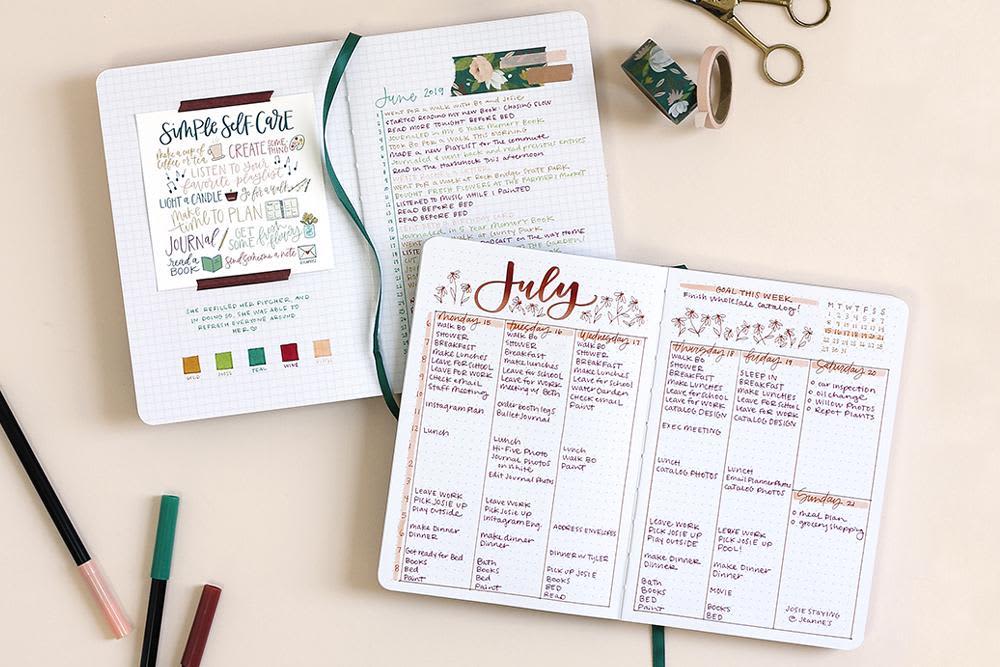 Simple Self Care
make a cup of
coffee or tea
CREATE SOME
THING
LISTEN TO your
favorite playlist
LIGHT A CANDLE
go for a walk
make
time TO PLAN
JOURNAL
GET fresh
SOME flowers
read a
BOOK
Send someone a note
SHE REFILLED HER PITCHER, AND
IN DOING SO, SHE WAS ABLE TO
REFRESH EVERYONE AROUND
HER
GOLD
MOSS
TEAL
WINE
June 2019
WENT FOR A WALK WITH BO and JOSIE
STARTED READING MY NEW BOOK: CHASING SLOW
READ MORE TONIGHT BEFORE BED
JOURNALED IN MY 5 YEAR MEMORY BOOK
TOOK BO FOR A WALK THIS MORNING
MADE A NEW PLAYLIST FOR THE COMMUTE
Journaled & went back and read previous entries
Read in the Hammock this afternoon
WENT FOR A WALK AT ROCK BRIDGE STATE PARK
BOUGHT FRESH FLOWERS AT THE FARMERS MARKET
LISTENED TO MUSIC WHILE I PAINTED
READ BEFORE BED
READ BEFORE BED
JOURNALED IN 5 YEAR MEMORY BOOK
PODCAST ON THE WAY HOME
July
monday 15
6
WALK BO
SHOWER
7
BREAKFAST
make Lunches
8
Leave for School
Leave for work
9
Check email
Staff Meeting
10
Instagram Plan
11
12
Lunch
4
Leave work
PICK JOSIE UP
5
Play outside
6
make Dinner
DINNER
7
Get ready for Bed
Books
8
Bed
Paint
tuesday 16
WALK BO
SHOWER
Breakfast
make lunches
Leave for school
Leave for work
meeting w/ Beth
order booth legs
Bullet Journal
Lunch
Hi-Five Photo
Journal Photos
on White
Edit Journal Photos
Leave Work
Pick Josie up
Instagram Eng.
make dinner
Dinner
Bath
Books
Bed
Paint
Wednesday 17
WALK BO
SHOWER
BREAKFAST
Make Lunches
Leave for School
Water Garden
Check email
Paint
Lunch
WALK BO
PAINT
ADDRESS ENVELOPES
DINNER W/ TYLER
Pick up Josie
Books
BED
READ
GOAL THIS WEEK
Finish Wholesale Catalog!
M T W T F S S
1 2 3 4 5 6 7
8 9 10 11 12 13 14
15 16 17 18 19 20 21
22 23 24 25 26 27 28
29 30 31
Thursday 18
WALK BO
SHOWER
BREAKFAST
Make Lunches
Leave for school
Leave for work
Catalog Design
EXEC MEETING
Lunch
CATALOG PHOTOS
LEAVE WORK
PICK JOSIE UP
PLAY OUTSIDE
Make Dinner
Dinner
Bath
Books
BED
Paint
Friday 19
SLEEP IN
BREAKFAST
Make Lunches
Leave for School
Leave for work
Catalog Design
Lunch
Email Planner Photos
Catalog Photos
LEAVE WORK
PICK JOSIE UP
POOL!
make Dinner
Dinner
MOVIE
BOOKS
BED
Saturday 20
o car inspection
o oil change
o Willow Photos
o Repot Plants
Sunday 21
o meal plan
o grocery shopping
JOSIE STAYING
@ JEANNE'S